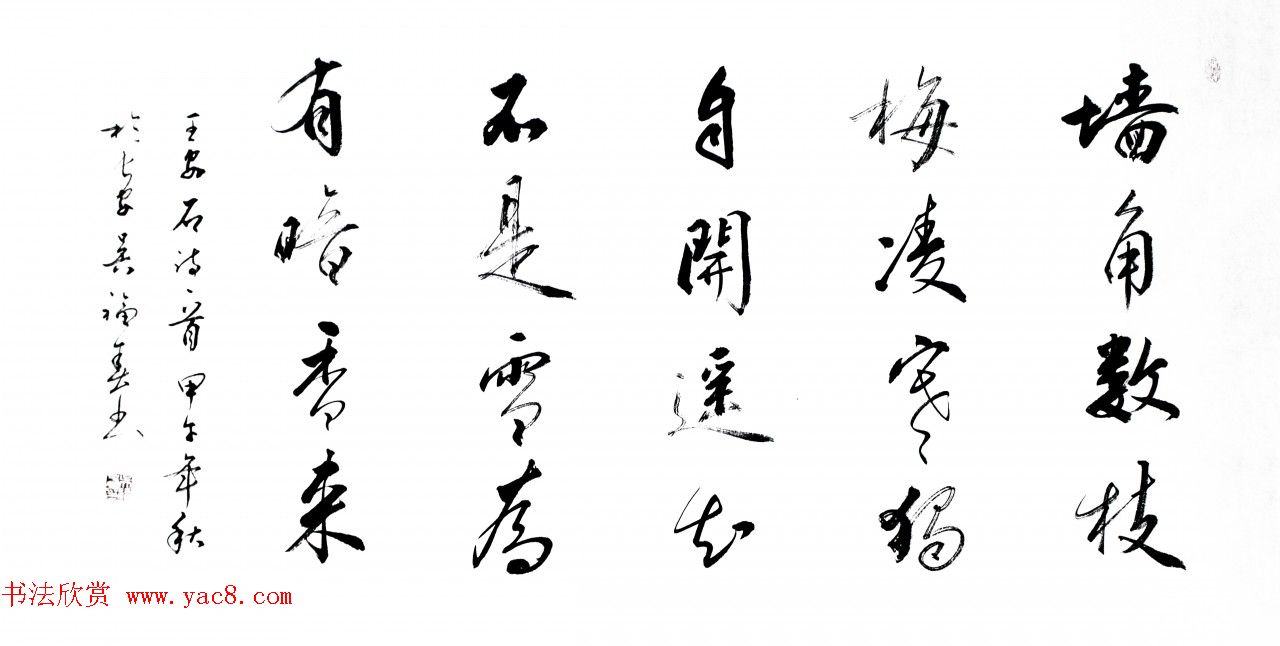 墙角数枝
梅凌寒独
自開遥知
不是雪為
有暗香来
王安石诗一首甲午年秋
於长安吴福春书
书法欣赏 www.yac8.com